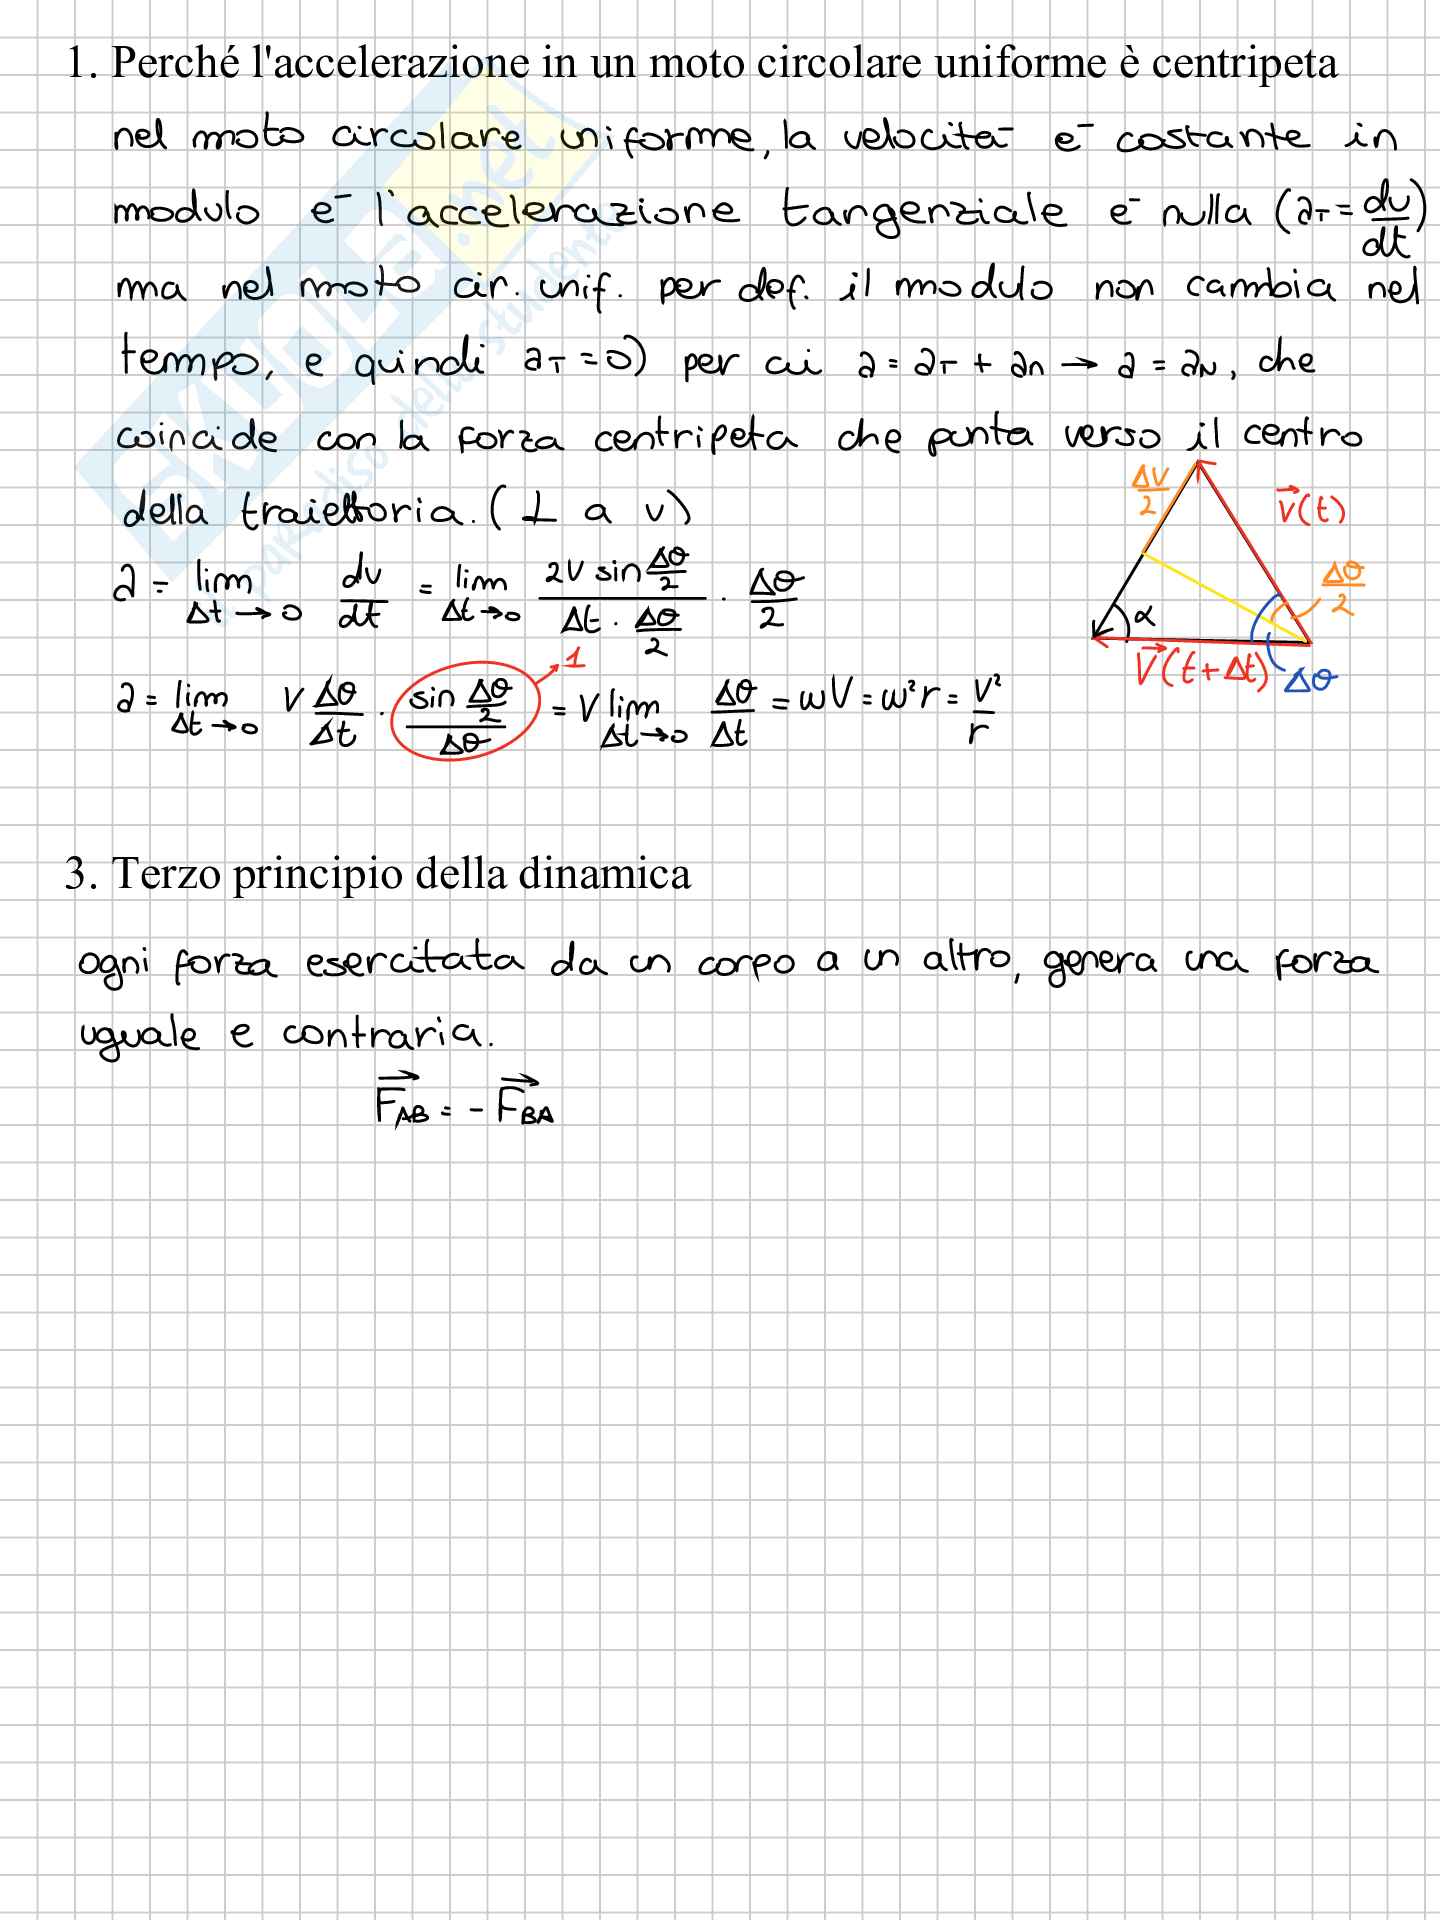 1. Perché l'accelerazione in un moto circolare uniforme è centripeta
nel moto circolare uniforme, la velocità è costante in
modulo e l'accelerazione tangenziale è nulla (a_T = dv/dt)
ma nel moto cir. unif. per def. il modulo non cambia nel
tempo, e quindi a_T = 0) per cui a = a_T + a_n → a = a_N, che
coincide con la forza centripeta che punta verso il centro
della traiettoria. (⊥ a v)
ΔV/2
V⃗(t)
a = lim Δt→0 dv/dt = lim Δt→0 2V sin Δθ/2 / Δt · Δθ/2 · Δθ/2
Δθ/2
α
V⃗(t+Δt)
Δθ
1
a = lim Δt→0 V Δθ/Δt · sin Δθ/2 / Δθ = V lim Δt→0 Δθ/Δt = ωV = ω²r = V²/r
3. Terzo principio della dinamica
ogni forza esercitata da un corpo a un altro, genera una forza
uguale e contraria.
F⃗_AB = - F⃗_BA
SKUOLA.net
il paradiso dello studente